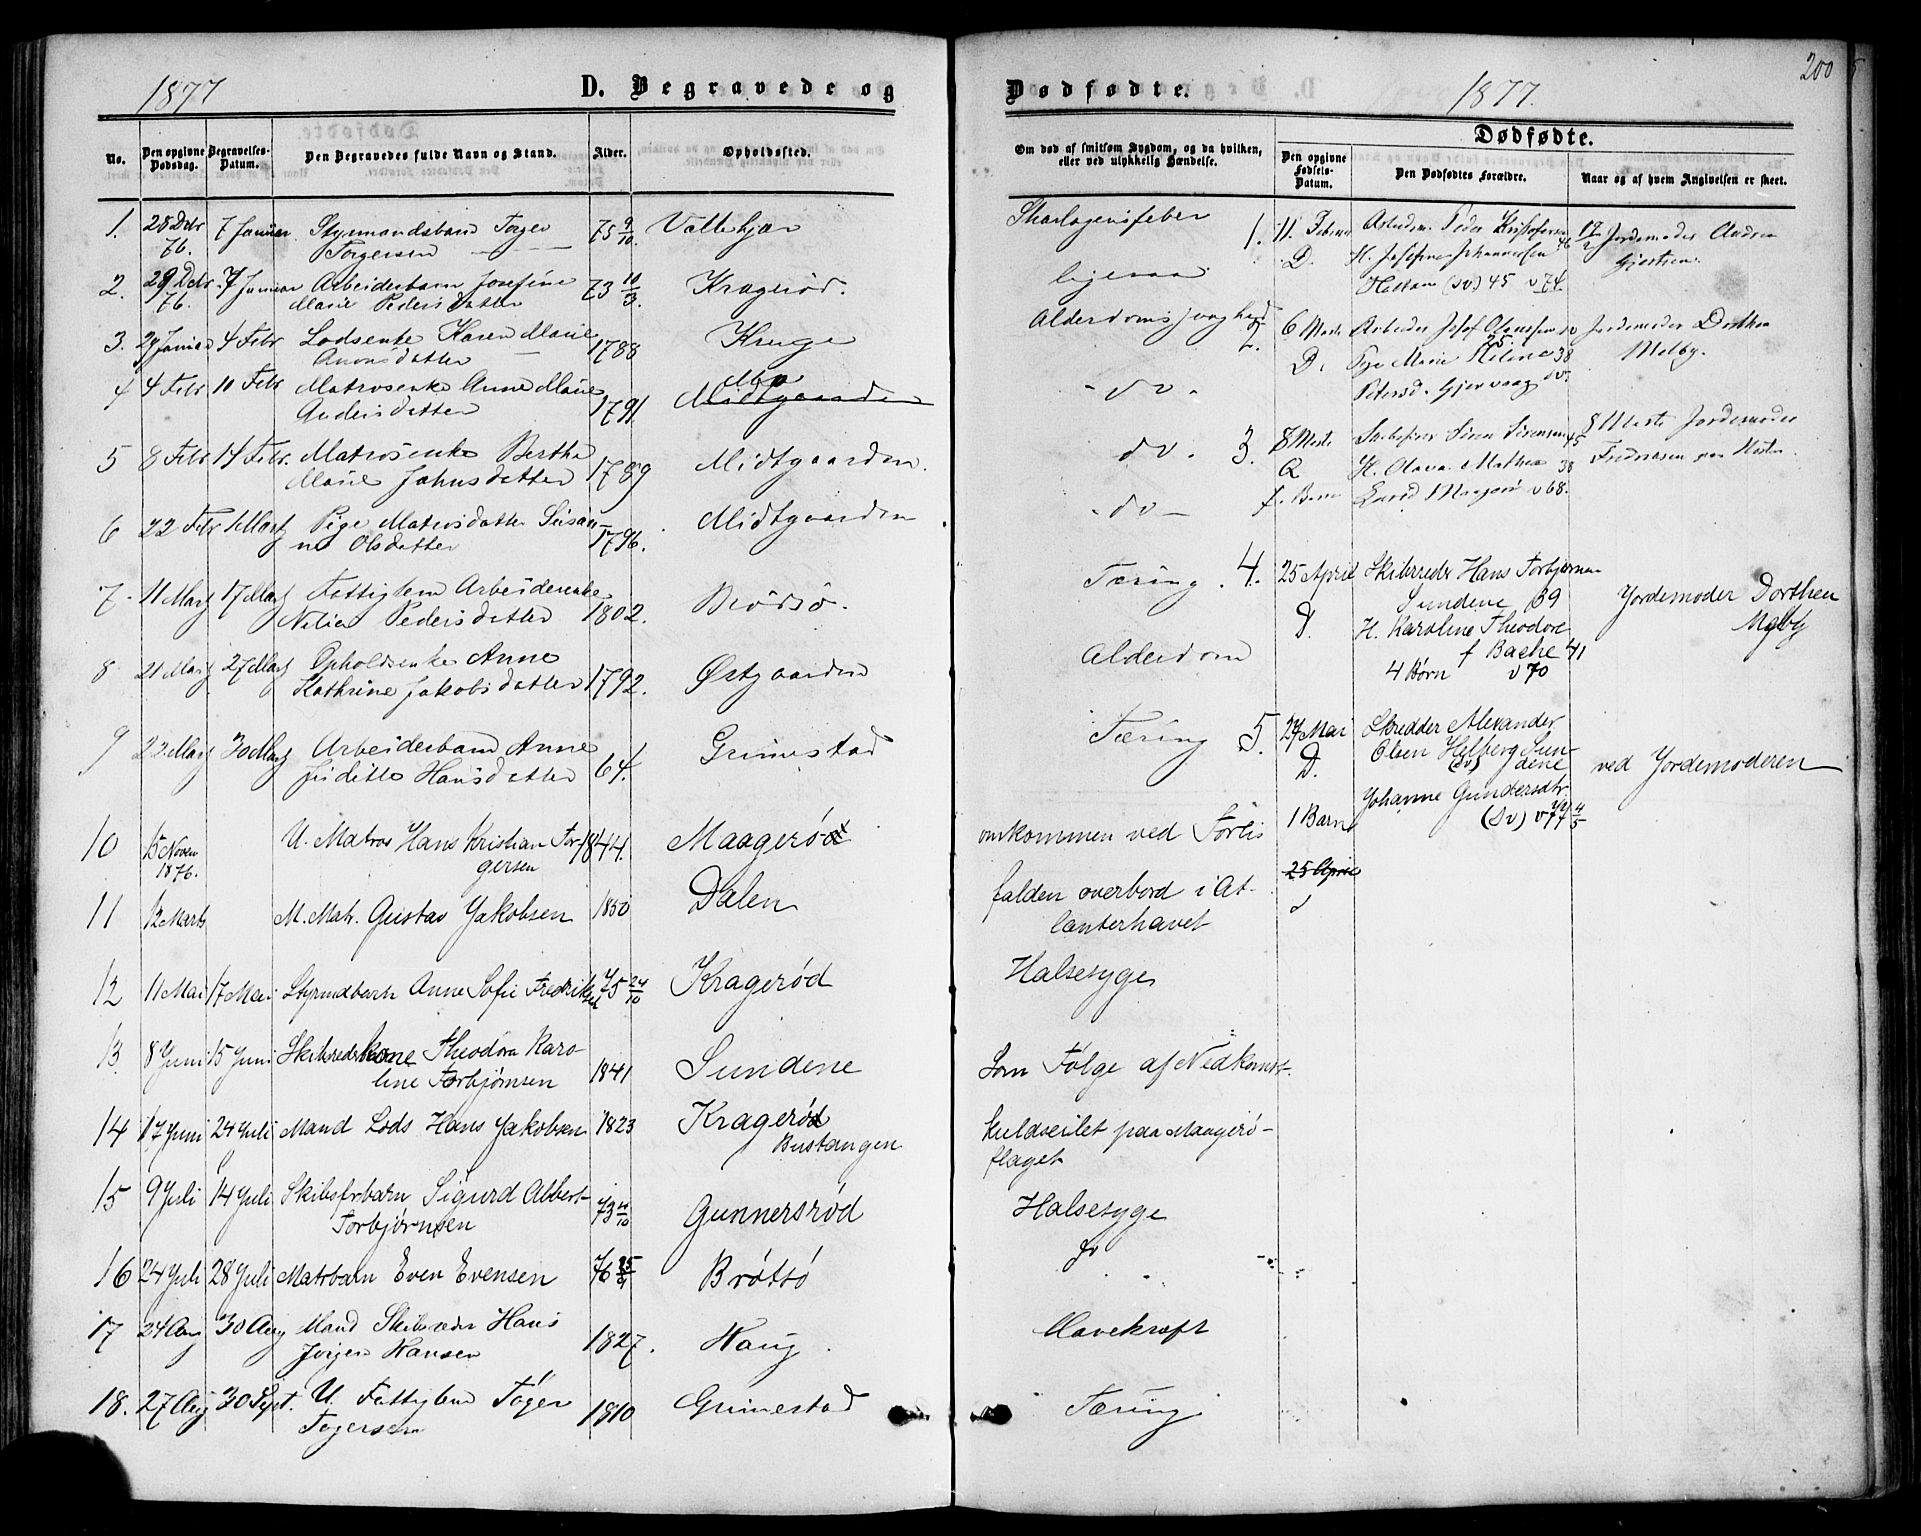 1877
D. Begravede og
No.
Den opgivne Dødsdag.
Begravelses-Datum.
Den Begravedes fulde Navn og Stand.
Alder.
Opholdssted.
1. 28 Debr 76. 7 Januar Styrmandsbarn Torger 75 9/10 Vallekjær
Torgersen
2. 29 Debr 76. 7 Januar Arbeiderbarn Josefine 73 10/3. Kragerød.
Marie Pedersdatter
3. 29 Januar 4 Febr Lodsenke Karen Marie 1788 Kruge
Amonsdatter
4 4 Febr 10 Febr Matrosenke Anne Marie 1791. Moe
Andersdatter Midtgaarden
5 8 Febr 14 Febr. Matrosenke Berthe 1789 Midtgaarden.
Marie Jahnsdatter
6 22 Febr 1 Marts Pige Matrosdatter Susan- 1796. Midtgaarden
ne Olsdatter
7. 11 Marts 17 Marts Fattiglem Arbeiderenke 1802. Brødsø.
Nilia Pedersdatter
8 21 Marts 27 Marts Opholdsenke Anne 1792. Østgaarden
Kathrine Jakobsdatter
9 22 Marts 30 Marts Arbeiderbarn Anne 64. Grimestad
Juditte Hansdatter
10 15 Novem 1876. U. Matros Hans Kristian Tor- 1844. Maagerø
gersen
11 12 Marts M. Matr. Gustav Jakobsen 1850 Dalen
12 11 Mai 17 Mai Styrmdbarn Anne Sofie Fredriksel 75 24/10 Kragerød
13. 8 Juni 15 Juni Skibsrederkone Theodora Karo- 1841 Sundene
line Torbjørnsen
14 17 Juni 24 Juli Mand Lods Hans Jakobsen 1823 Kragerød
Bustangen
15 9 Juli 14 Juli Skibsfrbarn Sigurd Albert 73 4/10 Gunnersrød
Torbjørnsen
16 24 Juli 28 Juli Matrbarn Even Evensen 76 25/9 Brøtsø
17 24 Aug 30 Aug Mand Skibsreder Hans 1827. Haug.
Jørgen Hansen
18. 27 Aug 30 Sept. U. Fattiglem Tøger 1810 Grimestad
Tøgersen
Dødfødte.
1877.
200
Om død af smitsom Sygdom, og da hvilken,
eller ved ulykkelig Hændelse.
Dødfødte.
Den opgivne Fødsels-Datum.
Den Dødfødtes Forældre.
Naar og af hvem Angivelsen er skeet.
Skarlagensfeber
ligesaa
Alderdomssvaghed
- do -
do.
- do -
Tæring.
Alderdom
Tæring
omkommen ved Forlis
falden overbord i At-
lanterhavet
Halsesyge
Som Følge af Nedkomst.
kuldseilet paa Maagerø-
flaget
Halsesyge
do
Mavekræft
Tæring
1. 11. Februar Peder Kristofersen 46 17/2 Jordemoder Andrea
D. H. Josefine Johannesen Gjertsen.
(Sv) 45 v 74.
2. 6 Marts Arbeider Josef Olaussen Jordemoder Dorthea
D. Pige Marie Heline 38 Melby.
Petersd. Gjervaag do.
3. 8 Marts Søren Sørensen 45 8 Marts Jordemoder
H. Olava Mathea 38
v 68.
4. 25 April Skibsreder Hans Torbjørnsen
D. Sundene 39 Jordemoder Dorthea
H. Karoline Theodore Melby
f Bache 41
4 Børn v 70
5. 27 Mai Skredder Alexander
D. Olsen Helberg Sun-
(Sv) dene ved Jordemoderen
1 Barn Johanne Gundersdtr
(Sv) v 77 4/5
25 April